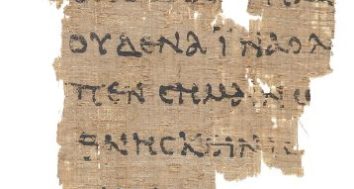 ΟΥΔΕΝΑΪΝΑΟΛ
ΠΕΝCΗΜΑΙΝΩ
ΘΝΗCΚΕΙΝΙC